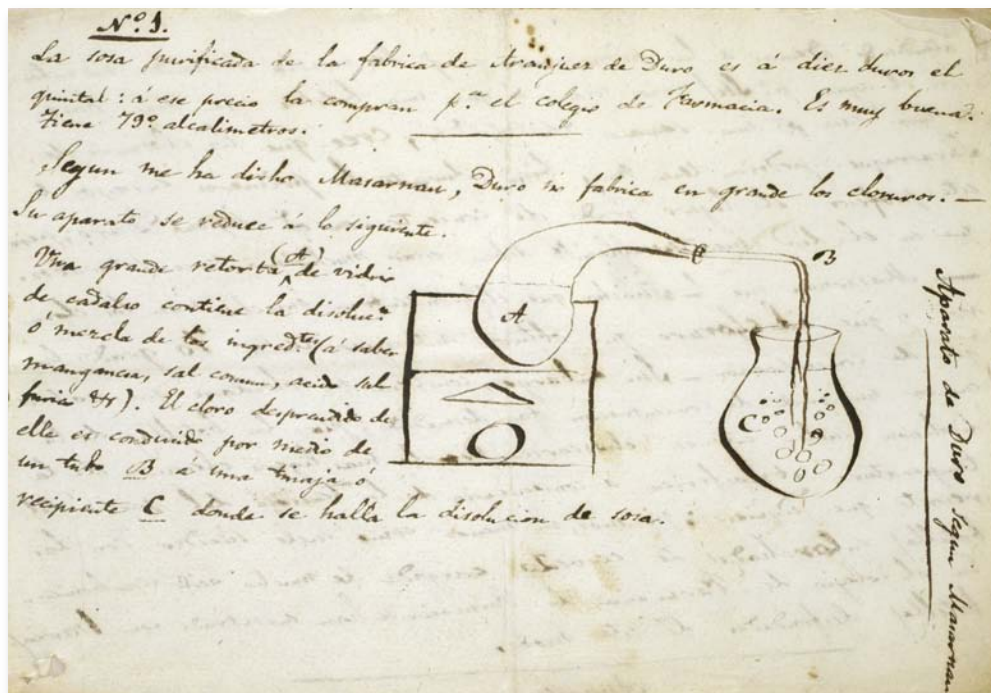 Nº 1.
La sosa purificada de la fabrica de Aranjuez de Duro es á diez duros el
quintal: á ese precio la compran p.ª el colegio de Farmacia. Es muy buena.
Tiene 79º alcalimetros.
Segun me ha dicho Masarnau, Duro no fabrica en grande los cloruros. —
Su aparato se reduce á lo siguiente.
Una grande retorta (A) de vidrio
de cadalso contiene la disoluc.n
ó mezcla de los ingred.tes (á saber
manganesa, sal comun, acido sul
furico &). El cloro desprendido de
ella es conducido por medio de
un tubo B á una tinaja ó
recipiente C donde se halla la disolucion de sosa.
A
B
C
Aparato de Duro segun Masarnau